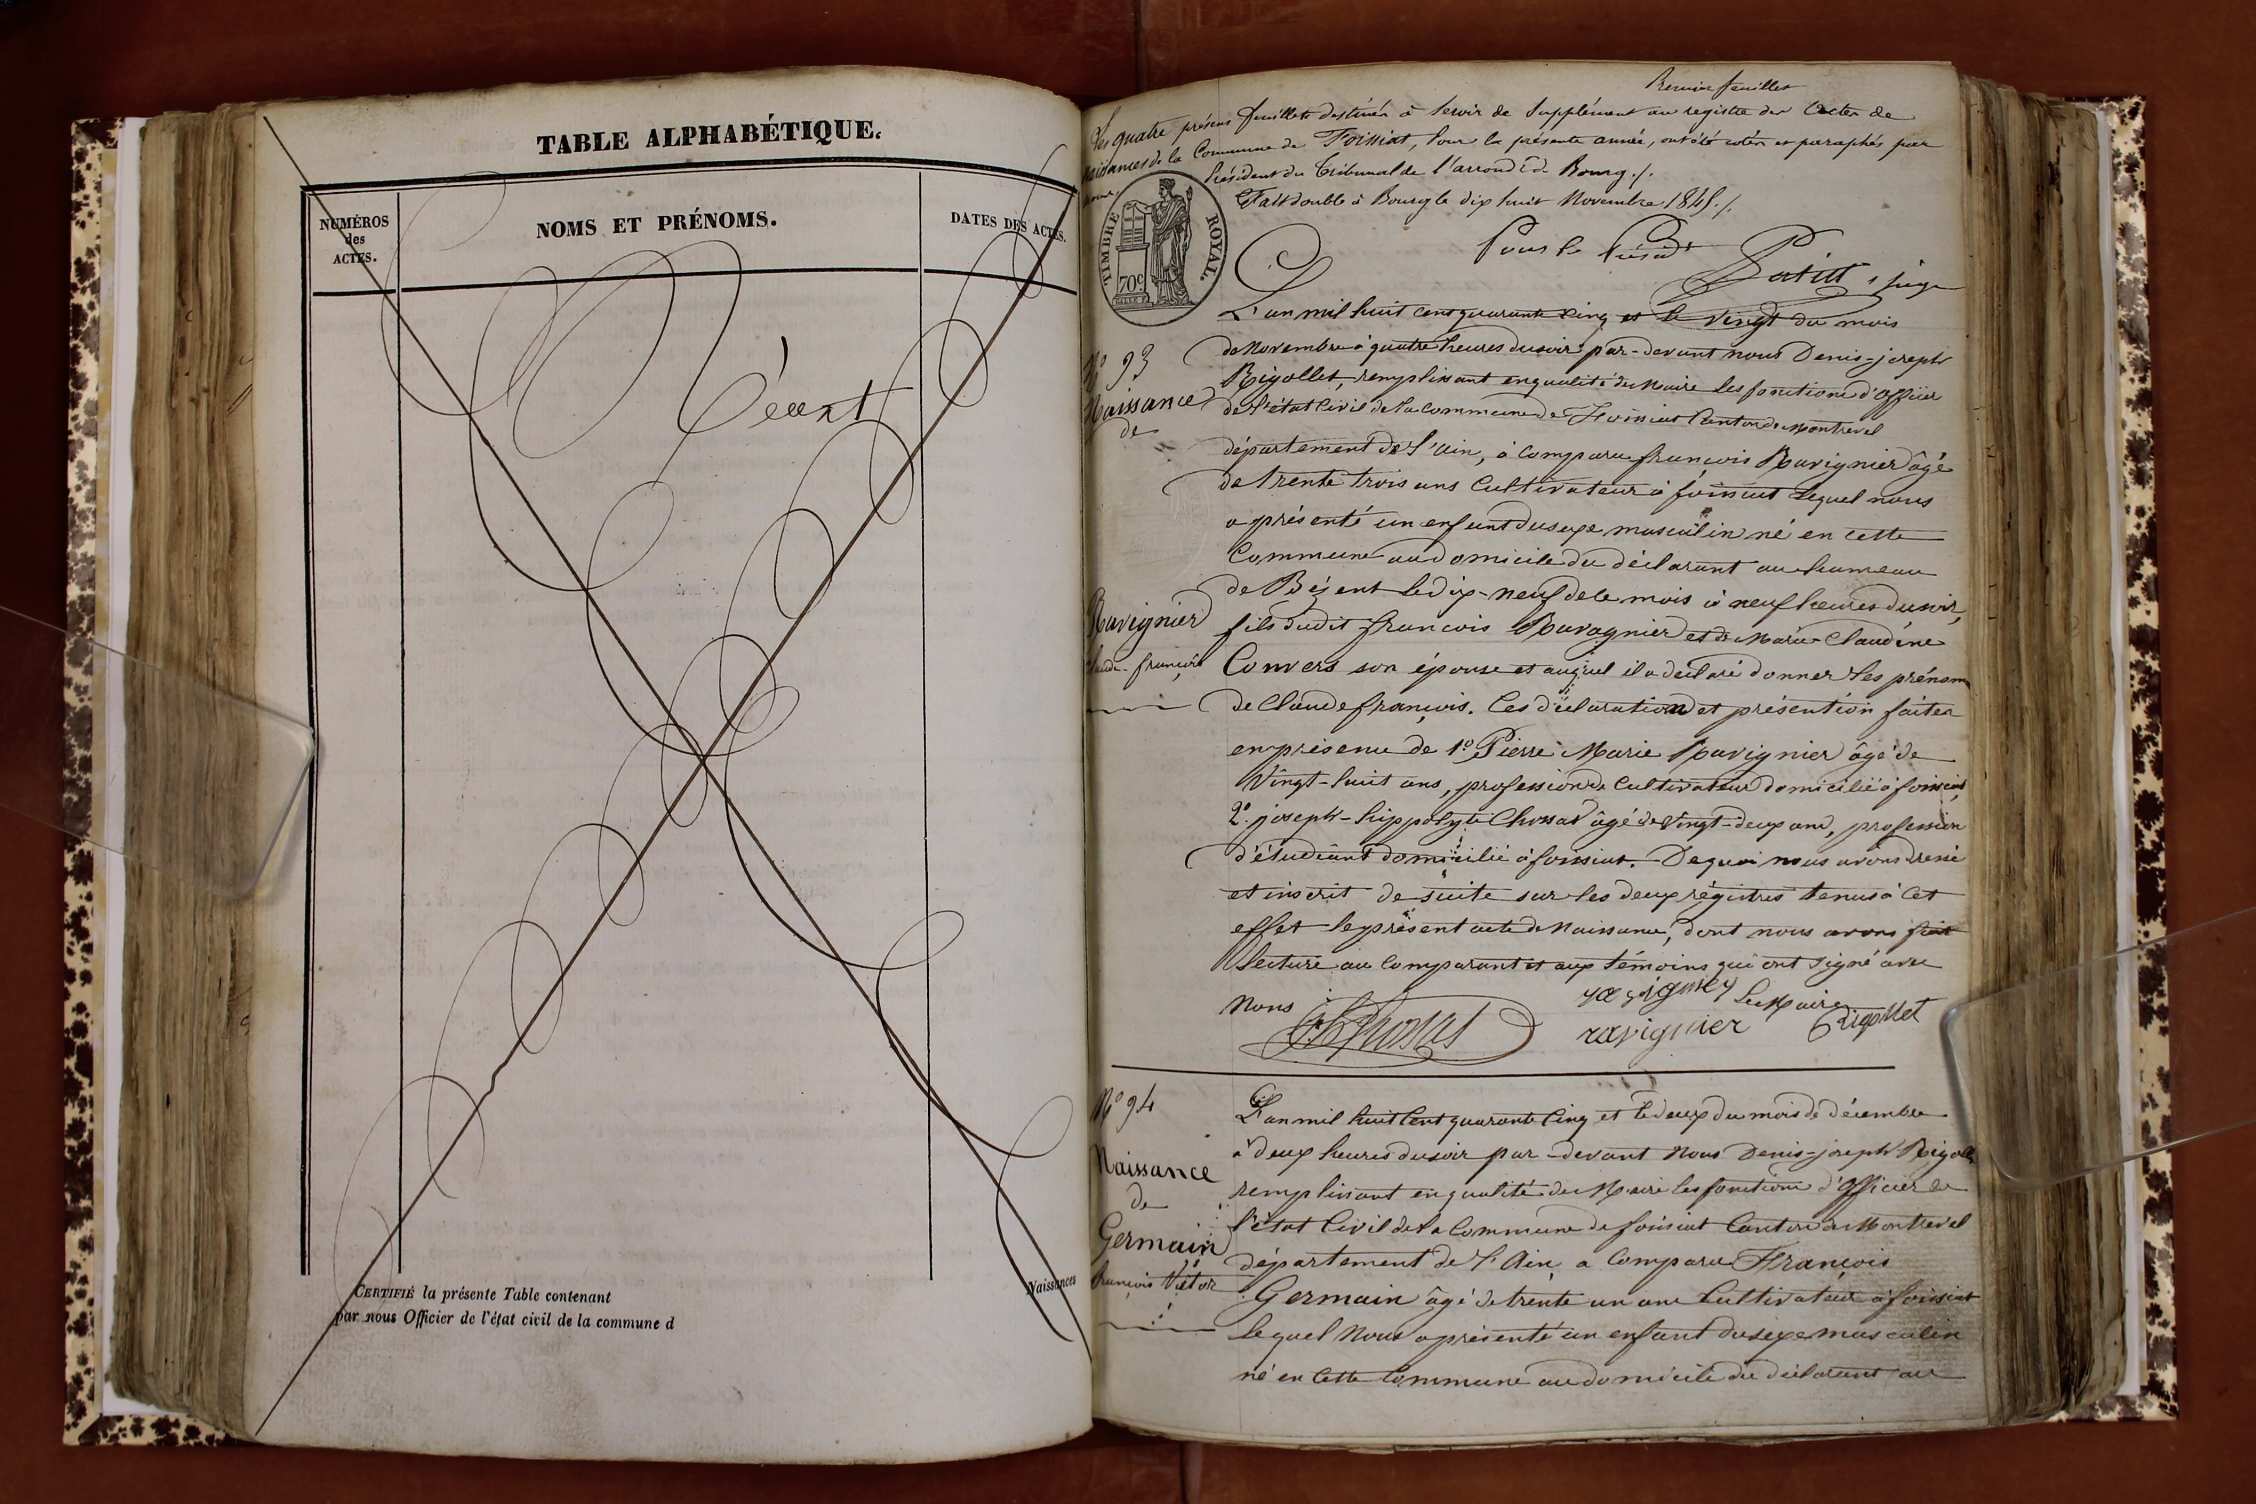 TABLE ALPHABÉTIQUE.
NUMÉROS
des
ACTES.
NOMS ET PRÉNOMS.
DATES DES ACTES.
Néant
CERTIFIÉ la présente Table contenant
Naissances
par nous Officier de l'état civil de la commune d
feuillet
Les quatre présens feuillets destinés à servir de supplément au registre des Actes de
naissances de la Commune de Foissiat, pour la présente année, ont été cotés et paraphés par
Président du Tribunal de l'arrond. de Bourg ./.
Fait double à Bourg le dix huit Novembre 1845 ./.
TIMBRE ROYAL.
70c
Pour le Présidt
juge
L'an mil huit cent quarante cinq et le vingt du mois
No 93
de Novembre à quatre heures du soir par-devant nous Denis-joseph
Rigollet, remplissant en qualité de Maire les fonctions d'officier
Naissance
de l'état Civil de la Commune de Foissiat Canton de Montrevel
de
département de l'ain, à comparu françois Ravignier âgé
de trente trois ans Cultivateur à foissiat lequel nous
a présenté un enfant du sexe masculin né en cette
Commune au domicile du déclarant au hameau
de Bézent le dix-neuf de ce mois à neuf heures du soir,
Ravignier
fils dudit françois Ravagnier et de Marie-Claudine
Claude-françois
Convers son épouse et auquel il a déclaré donner les prénoms
de Claude françois. Ces déclaration et présention faites
en présence de 1o Pierre Marie Ravignier âgé de
Vingt-huit ans, profession de Cultivateur domicilié à foissiat,
2o joseph-hippolyte Chossat âgé de Vingt-deux ans, profession
d'étudiant domicilié à foissiat. De quoi nous avons dressé
et inscrit de suite sur les deux régistres tenus à cet
effet le présent acte de Naissance, dont nous avons fait
lecture au Comparant et aux témoins qui ont signé avec
Nous
Chossat
ravignier
Le Maire
ravignier
Rigollet
No 94
L'an mil huit Cent quarante Cinq et le deux du mois de décembre
à deux heures du soir par-devant Nous Denis-joseph Rigollet
Naissance
remplissant en qualité de Maire les fonctions d'officier de
de
l'état Civil de la Commune de foissiat Canton de Montrevel
Germain
département de l'Ain a Comparu François
françois Victor
Germain âgé de trente un ans Cultivateur à foissiat
lequel Nous a présenté un enfant du sexe masculin
né en Cette Commune au domicile du déclarant au